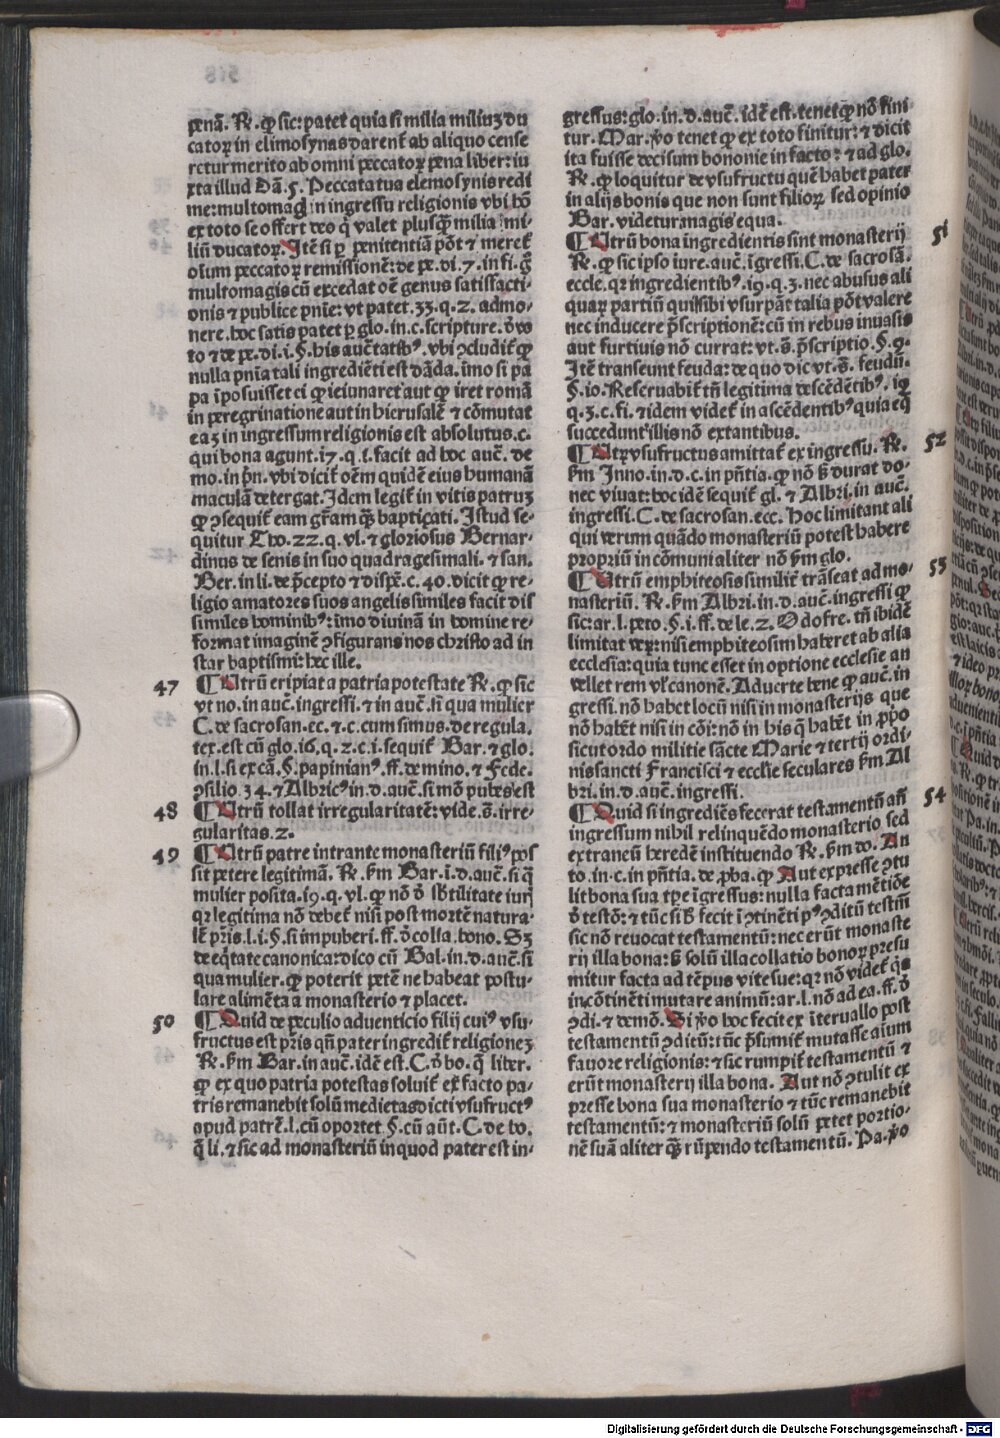 penā. Rͤ. ꝙ sic: patet quia si milia miliuꝫ du
catoꝝ in elimosynas darent ab aliquo cense
retur merito ab omni peccatoꝝ pena liber: iu
xta illud Dā. 5. Peccata tua elemosynis redi
me: multomagꝭ in ingressu religionis vbi hō
ex toto se offert deo q̇ valet plusꝙ̄ milia mi-
liū ducatoꝝ. Itē si ꝑ penitentiā pōt q̇ meret
oīum peccatoꝝ remissionē: de pe. di. 7. in fi. ꝗ̄
multomagis cū excedat oē genus satisfacti-
onis ⁊ publice pnīe: vt patet. 33. q. 2. admo-
nere. hoc satis patet ꝑ glo. in. c. scripture. ō vo
to ⁊ de pe. di. i. §. his auctatibꝰ. vbi ꝯcludit ꝙ
nulla pnīa tali ingrediēti est dāda. imo si pa
pa īposuisset ei ꝙ ieiunaret aut ꝙ iret romā
in peregrinatione aut in hierusalē ⁊ cōmutat
eaꝫ in ingressum religionis est absolutus. c.
qui bona agunt. 17. q. 1. facit ad hoc auc̄. de
mo. in pn̄. vbi dicit oēm quidē eius humanā
maculā detergat. Idem legit in vitis patruꝫ
ꝙ ꝯsequit eam gr̄am quā baptiçati. Istud se-
quitur Tho. 22. q. vl. ⁊ gloriosus Bernar-
dinus de senis in suo quadragesimali. ⁊ san.
Ber. in li. de p̄cepto ⁊ dispē. c. 40. dicit ꝙ re-
ligio amatores suos angelis similes facit dis
similes hominibꝰ: imo diuinā in homine re-
format imaginē ꝯfigurans nos christo ad in
star baptismi: hec ille.
47 ¶ Utrū eripiat a patria potestate Rͤ. ꝙ sic
vt no. in auc̄. ingressi. ⁊ in auc̄. si qua mulier
C. de sacrosan. ec. ⁊. c. cum simus. de regula.
ter. est cū glo. 16. q. 2. c. i. sequit Bar. ⁊ glo.
in. l. si ex cā. §. papinianꝰ. ff. de mino. ⁊ Fede.
ꝯsilio. 34. ⁊ Albricꝰ in. d. auc̄. si mō pubes est
48 ¶ Utrū tollat irregularitatē: vide. s̄. irre-
gularitas. 2.
49 ¶ Utrū patre intrante monasteriū filiꝰ pos
sit petere legitimā. Rͤ. ẜm Bar. i. d. auc̄. si q̄
mulier posita. 19. q. vl. ꝙ nō ō sbtilitate iurꝭ
qꝛ legitima nō debet nisi post mortē natura-
lē pr̄is. l. i. §. si impuberi. ff. ō colla. bono. Sꝫ
de eq̇tate canonica: dico cū Bal. in. d. auc̄. si
qua mulier. ꝙ poterit petē ne habeat postu-
lare alimēta a monasterio ⁊ placet.
50 ¶ Quid de peculio aduenticio filij cuiꝰ vsu-
fructus est pr̄is qn̄ pater ingredit religioneꝫ
Rͤ. ẜm Bar. in auc̄. idē est. C. ō bo. q̄ liber.
ꝙ ex quo patria potestas soluit ex facto pa-
tris remanebit solū medietas dicti vsufructꝰ
apud patrē. l. cū oportet. §. cū aūt. C. de bo.
q̄ li. ⁊ sic ad monasteriū in quod pater est in-
gressus: glo. in. d. auc̄. idē est. tenet ꝙ nō fini
tur. Mar. v̄o tenet ꝙ ex toto finitur: ⁊ dicit
ita fuisse decisum bononie in facto: ⁊ ad glo.
Rͤ. ꝙ loquitur de vsufructu quē habet pater
in alijs bonis que non sunt filioꝝ. sed opinio
Bar. videtur magis equa.
51 ¶ Utrū bona ingredientis sint monasterij
Rͤ. ꝙ sic ipso iure. auc̄. īgressi. C. de sacrosā.
eccle. qꝛ ingredientibꝰ. 19. q. 3. nec abusus ali
quaꝝ partiū quisibi vsurpāt talia pōt valere
nec inducere p̄scriptionē: cū in rebus inuasis
aut furtiuis nō currat: vt. s̄. p̄scriptio. §. 9.
Itē transeunt feuda: de quo dic vt. s̄. feudū.
§. 10. Reseruabit tn̄ legitima descēdētibꝰ. 19
q. 3. c. fi. ⁊ idem videt in ascēdentibꝰ quia eq̄
succedunt illis nō extantibus.
52 ¶ Utꝝ vsufructus amittat ex ingressu. Rͤ.
ẜm Inno. in. d. c. in pn̄tia. ꝙ nō s̄ durat do-
nec viuat: hoc idē sequit gl. ⁊ Albri. in auc̄.
ingressi. C. de sacrosan. ecc. Hoc limitant ali
qui verum quādo monasteriū potest habere
propriū in cōmuni aliter nō ẜm glo.
53 ¶ Utrū emphiteosis similit trāseat ad mo-
nasteriū. Rͤ. ẜm Albri. in. d. auc̄. ingressi ꝙ
sic: ar. l. peto. §. i. ff. de le. 2. Odofre. tn̄ ibidē
limitat veꝝ: nisi emphiteosim haberet ab alia
ecclesia: quia tunc esset in optione ecclesie an
vellet rem vl̄ canonē. Aduerte bene ꝙ auc̄. in
gressi. nō habet locū nisi in monasterijs que
nō habēt nisi in cōi: nō in his q̄ habēt in ꝓpō
sicut ordo militie sācte Marie ⁊ tertij ordi-
nis sancti Francisci ⁊ ecclīe seculares ẜm Al
bri. in. d. auc̄. ingressi.
54 ¶ Quid si ingrediēs fecerat testamentū añ
ingressum nihil relinquēdo monasterio sed
extraneū heredē instituendo Rͤ. ẜm do. An
to. in. c. in pn̄tia. de ꝓba. ꝙ Aut expresse ꝯtu
lit bona sua tp̄e īgressus: nulla facta mētiōe
ō testō: ⁊ tūc si h̄ fecit ī ꝯtinēti pꝰ ꝯditū testm̄
sic nō reuocat testamentū: nec erūt monaste
rij illa bona: s̄ solū illa collatio bonoꝝ presu
mitur facta ad tēpus vite sue: qꝛ nō videt q̇s
incōtinēti mutare animū: ar. l. nō ad ea. ff. ō
ꝯdi. ⁊ demō. Si v̄o hoc fecit ex īteruallo post
testamentū ꝯditū: tūc p̄sumit mutasse aīum
fauore religionis: ⁊ sic rumpit testamentū ⁊
erūt monasterij illa bona. Aut nō ꝯtulit ex
presse bona sua monasterio ⁊ tūc remanebit
testamentū: ⁊ monasteriū solū petet portio-
nē suā aliter quā rūpendo testamentū. Pa. v̄o
Digitalisierung gefördert durch die Deutsche Forschungsgemeinschaft - DFG